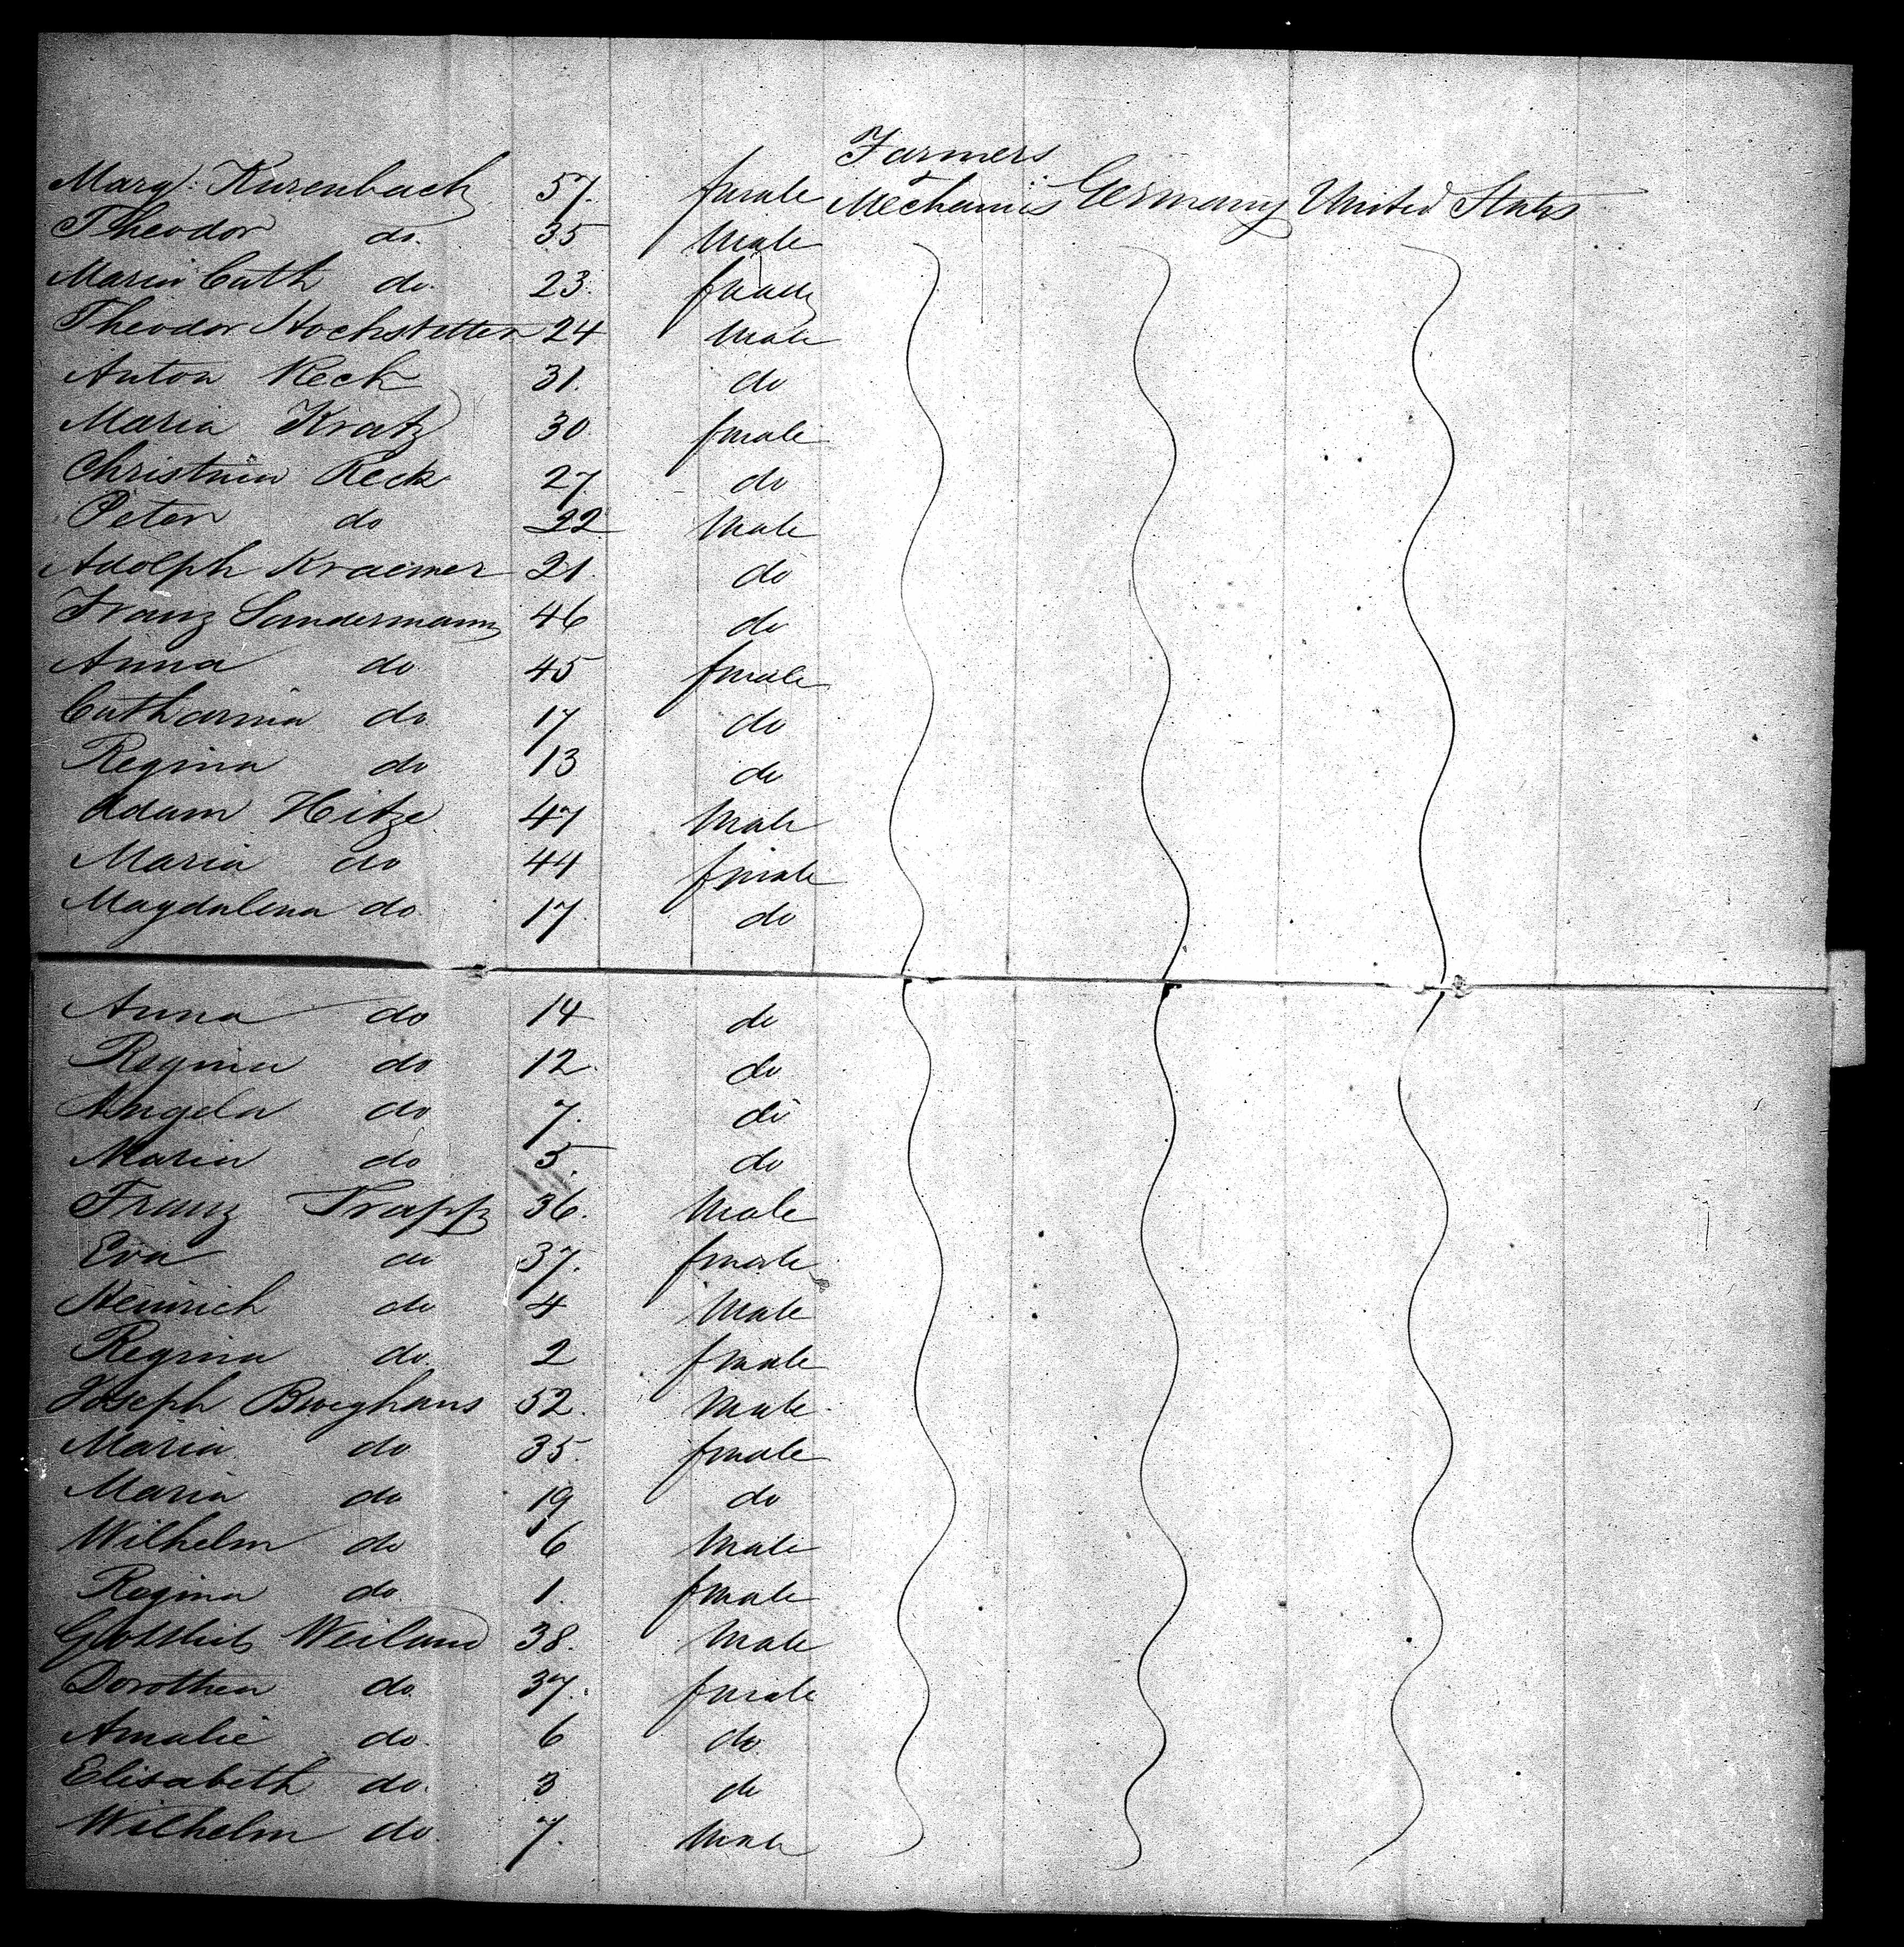 Farmers
Marg: Kurenbach 57. female & Mechanics Germany United States
Theodor do. 35 Male
Maria Cath do. 23. female
Theodor Hochstetter 24 Male
Anton Reck 31. do
Maria Kratz 30. female
Christina Reck 27. do
Peter do 22 Male
Adolph Kraemer 21. do
Franz Sandermann 46 do
Anna do. 45 female
Catharina do 17 do
Regina do. 13 do
Adam Hitze 47 Male
Maria do 44 female
Magdalena do. 17. do
Anna do 14 do
Regina do 12. do
Angela do 7. do
Maria do 5. do
Franz Trapp 36. Male
Eva do 37. female
Heinrich do 4 Male
Regina do. 2 female
Joseph Berghaus 52. Male
Maria do 35. female
Maria do 19 do
Wilhelm do 6 Male
Regina do. 1. female
Gottlieb Weiland 38. Male
Dorothea do. 37. female
Amalie do. 6 do
Elisabeth do. 3. do
Wilhelm do. 7. Male